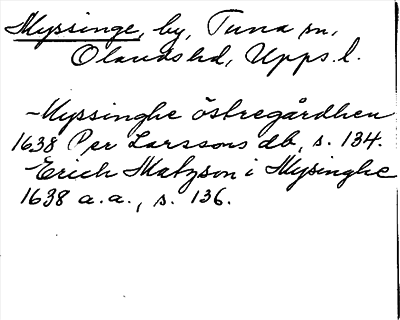 Myssinge, by, Tuna sn,
Olands hd, Upps. l.
-Myssinghe östregårdhen
1638 Per Larssons db, s. 134.
-Erich Matzson i Mysinghe
1638 a.a., s. 136.